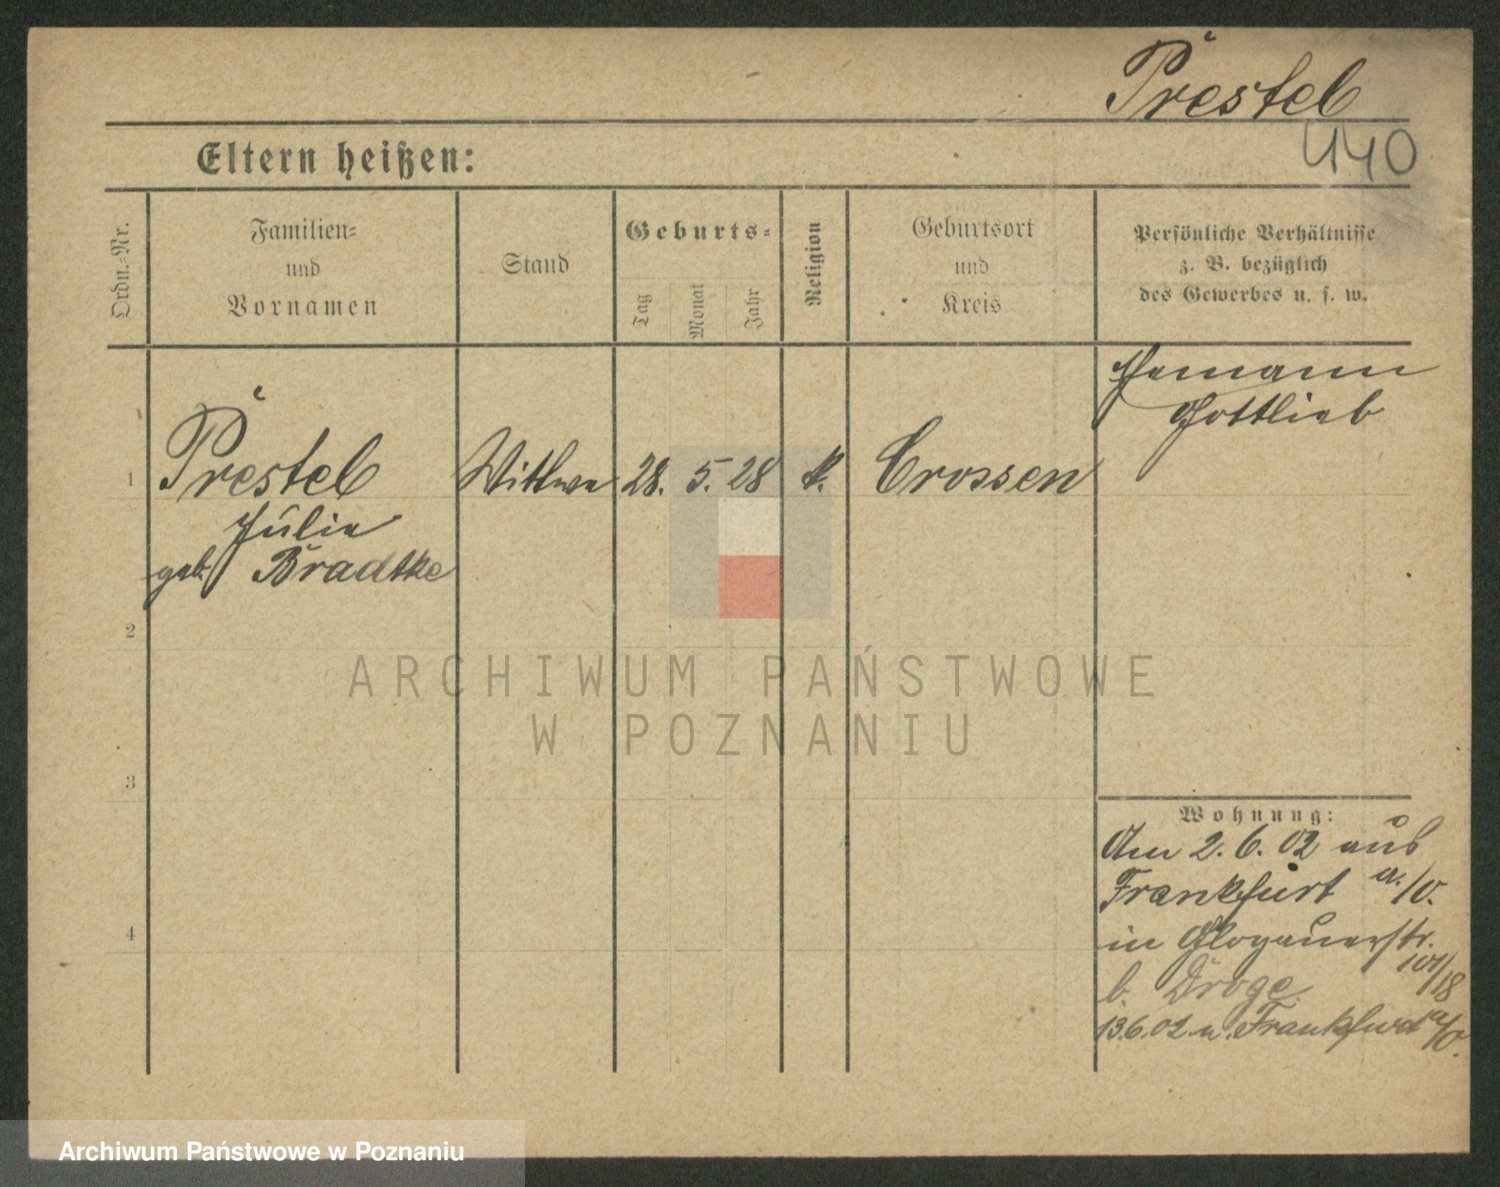 Prestel
440
Eltern heißen:
Ordn.-Nr.
Familien-
und
Vornamen
Stand
Geburts-
Tag
Monat
Jahr
Religion
Geburtsort
und
Kreis
Persönliche Verhältnisse
z. B. bezüglich
des Gewerbes u. s. w.
Hermann
Gottlieb
1 Prestel Wittwe 28. 5. 28 k. Crossen
Julie
geb. Bradtke
2
3
4
Wohnung:
Am 2. 6. 02 aus
Frankfurt a./O.
in Glogauerstr.
101/18
b. Droge
13.6.02 n. Frankfurt a/O.
ARCHIWUM PAŃSTWOWE
W POZNANIU
Archiwum Państwowe w Poznaniu